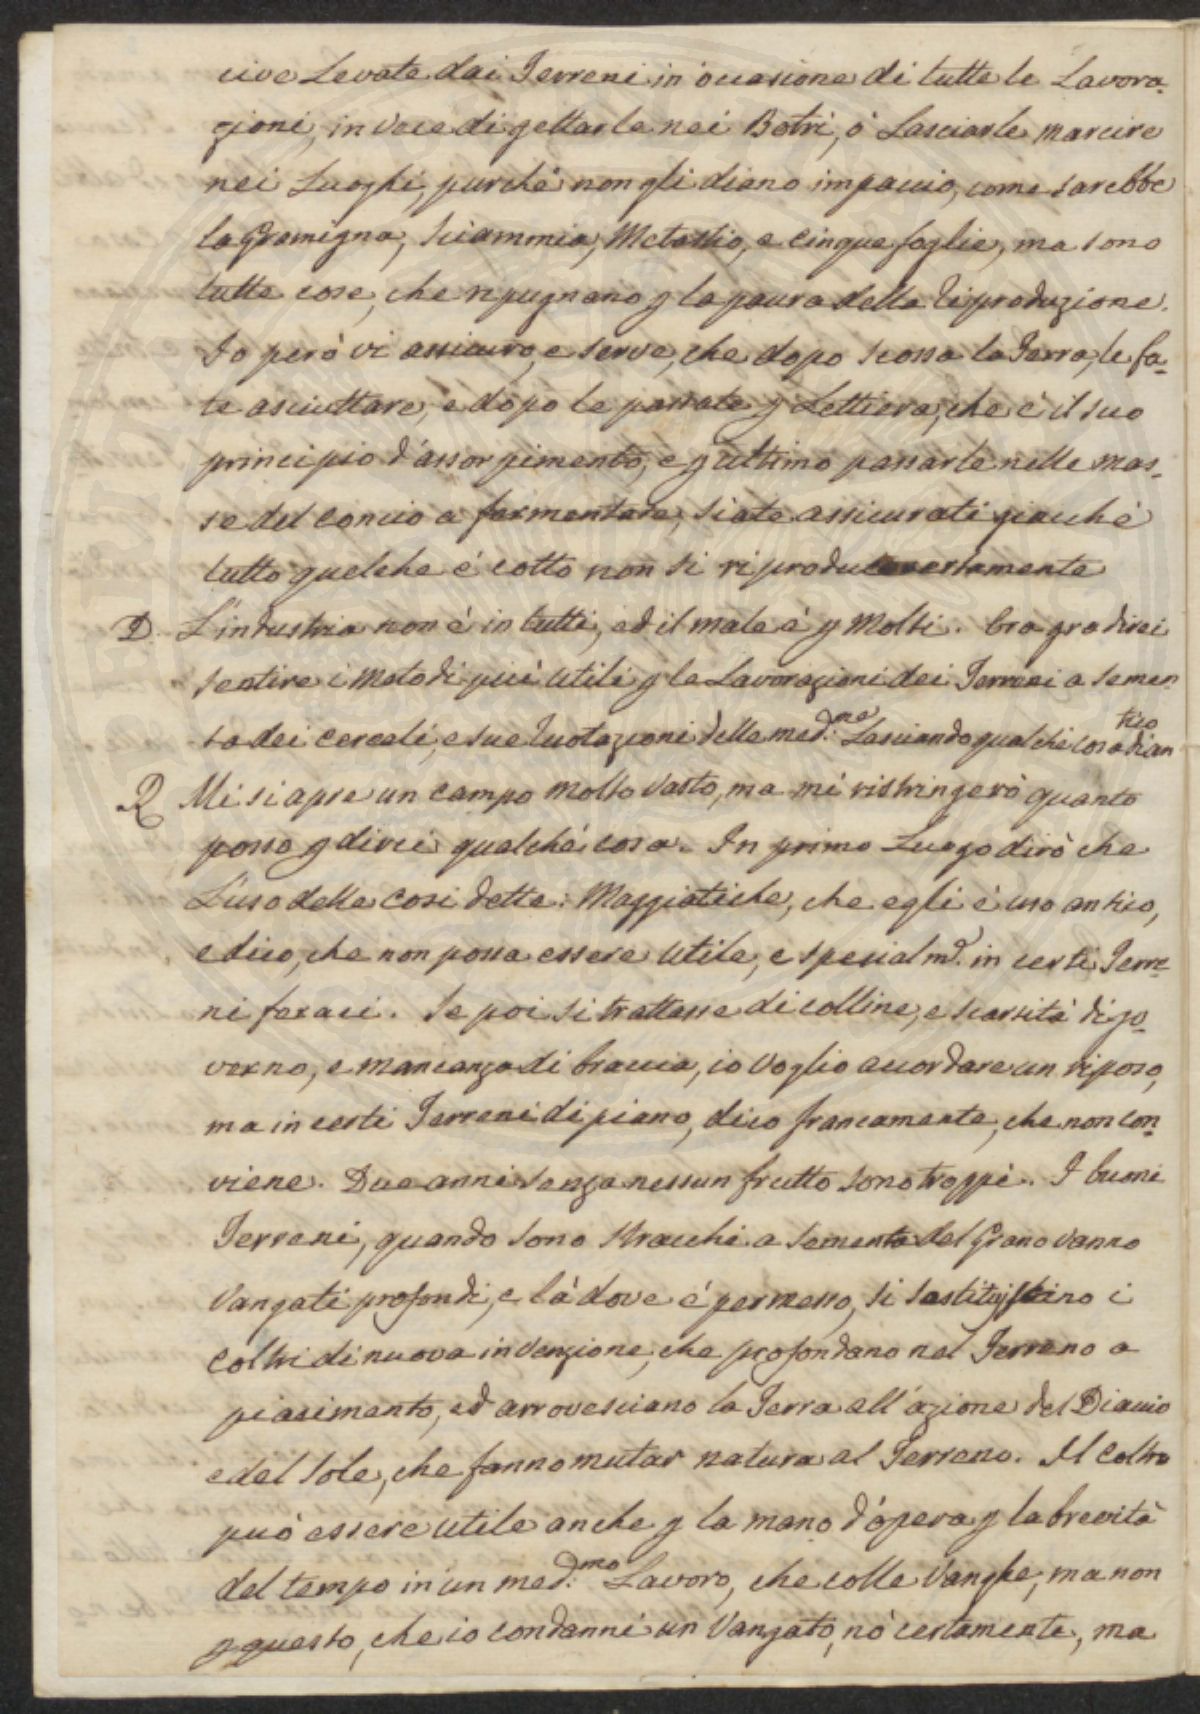 cive Levate dai Terreni in occasione di tutte le Lavora-
zioni, in vece di gettarle nei Botri, ò Lasciarle marcire
nei Luoghi, purchè non gli diano impaccio, come sarebbe
la Gramigna, Sciammia, Metastio, e Cinque foglie, ma sono
tutte cose, che repugnano p la paura della Riproduzione.
Io però vi assicuro, e serve, che dopo scossa la Terra, le fa-
te asciuttare, e dopo le passate p Lettiera, che è il suo
principio d'assorpimento, e p ultimo passarle nelle mas-
se del concio a fermentare, siate assicurati giacchè
tutto quelche è cotto non si riproduce certamente
D. L'industria non è in tutti, ed il male è p Molti. Ora gradirei
sentire i Metodi più utili p le Lavorazioni dei Terreni a semen-
ta dei cereali, e sue Ruotazioni delle med:me Lasciando qualche cosa d'an
tico
R Mi si apre un campo molto vasto, ma mi ristringerò quanto
posso p dirci qualchè cosa. In primo Luogo dirò che
L'uso delle così dette: Maggiatiche, che egli è uso antico,
e dico, che non possa essere utile, e specialm.e in certi Terre-
ni feraci. Se poi si trattasse di colline, e scarsità di go-
verno, e mancanza di braccia, io voglio accordare un riposo,
ma in certi Terreni di piano, dico francamente, che non con-
viene. Due anni senza nessun frutto sono troppi. I buoni
Terreni, quando sono stracchi a sementa del Grano vanno
Vangati profondi, e là dove è permesso, si sostituischino i
coltri di nuova invenzione, che profondano nel Terreno a
piacimento, ed arrovesciano la Terra all'azione del Diaccio
e del Sole, che fanno mutar natura al Terreno. Il Coltro
può essere utile anche p la mano d'òpera p la brevità
del tempo in un med:mo Lavoro, che colle Vanghe, ma non
p questo, che io condanni un Vangato, nò certamente, ma